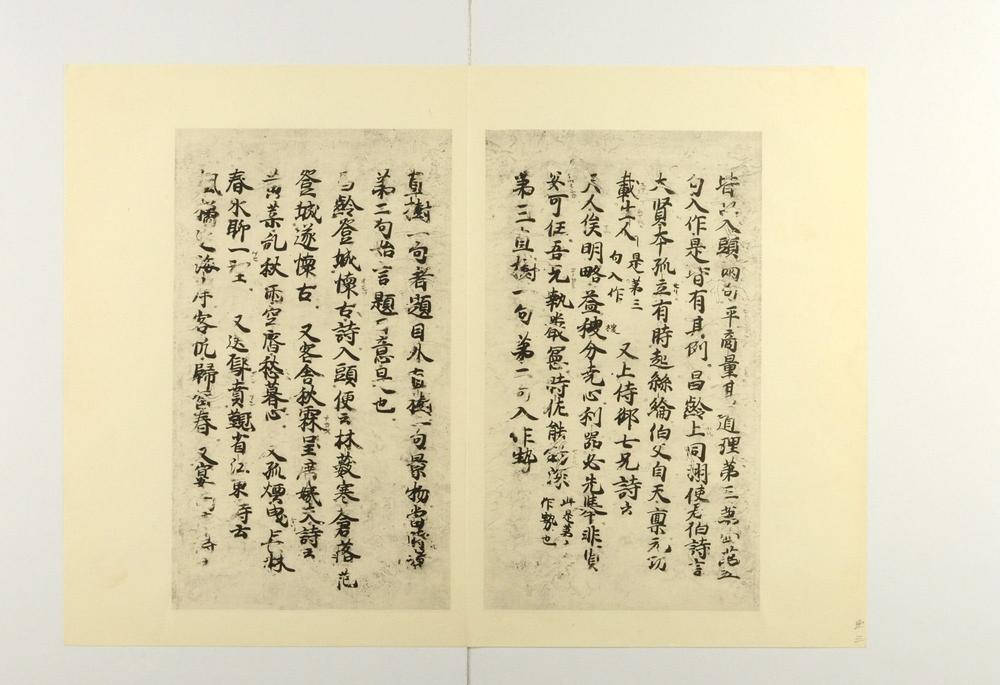 皆須入頭兩句平商量其道理第三第四第五
句入作是皆有其例昌齡上同州使君伯詩言
大賢本孤立有時起絲綸伯父自天稟元功
載生人是第三句入作又上侍御七兄詩云
天人俟明略益稷分堯心利器必先舉非賢
安可任吾兄執嚴憲時佐能釣深此是第五句入作勢也
第三直樹一句第二句入作勢
直樹一句者題目外直樹一句景物當時
第二句始言題目意是也
昌齡登城懷古詩入頭便云林藪寒倉落茫
登城遂懷古又客舍秋霖呈席姨夫詩云
黃葉乱秋雨空齋愁暮心又孤煙曳長林
春水聊一望又送鄢賁覲省江東詩云
楓橋延海岸客帆歸富春又宴